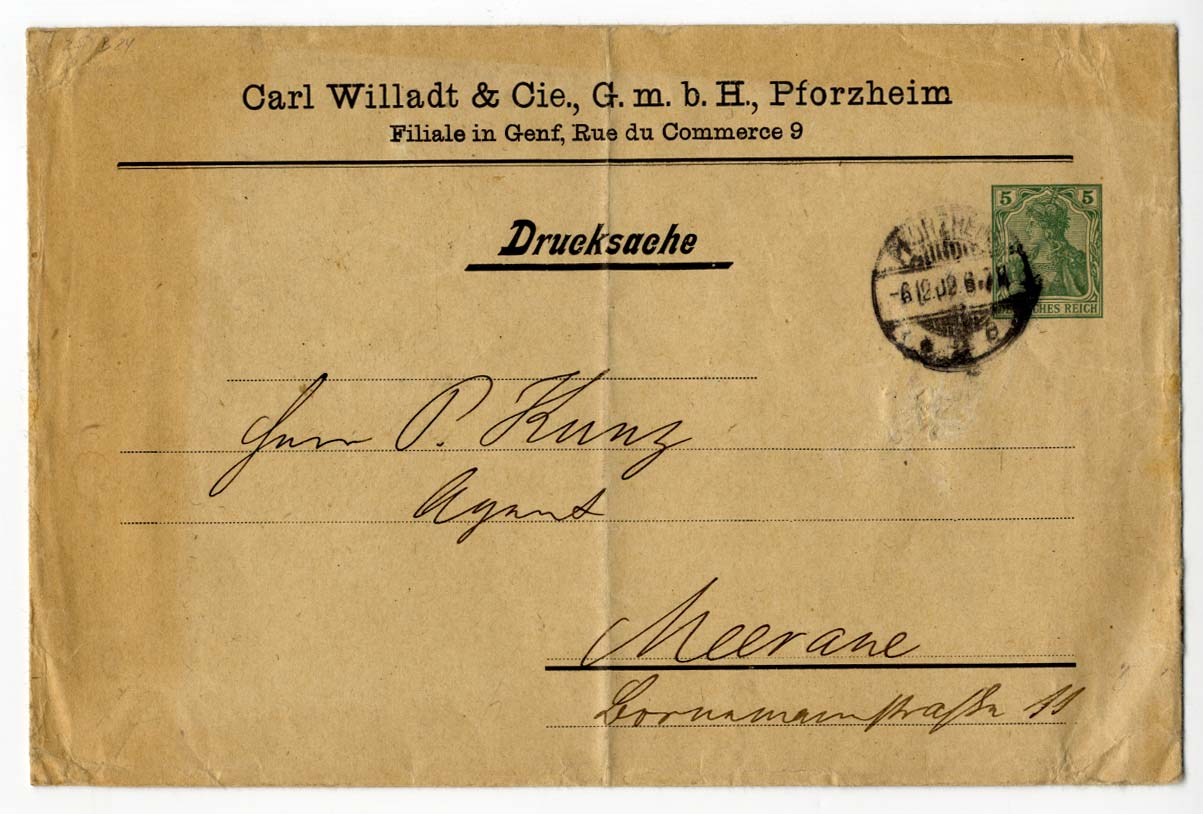 Carl Willadt & Cie., G. m. b. H., Pforzheim
Filiale in Genf, Rue du Commerce 9
Drucksache
5 5
REICH
-6.12.09. 6-7
Herrn P. Kunz
Agent
Meerane
Bornemannstraße 11